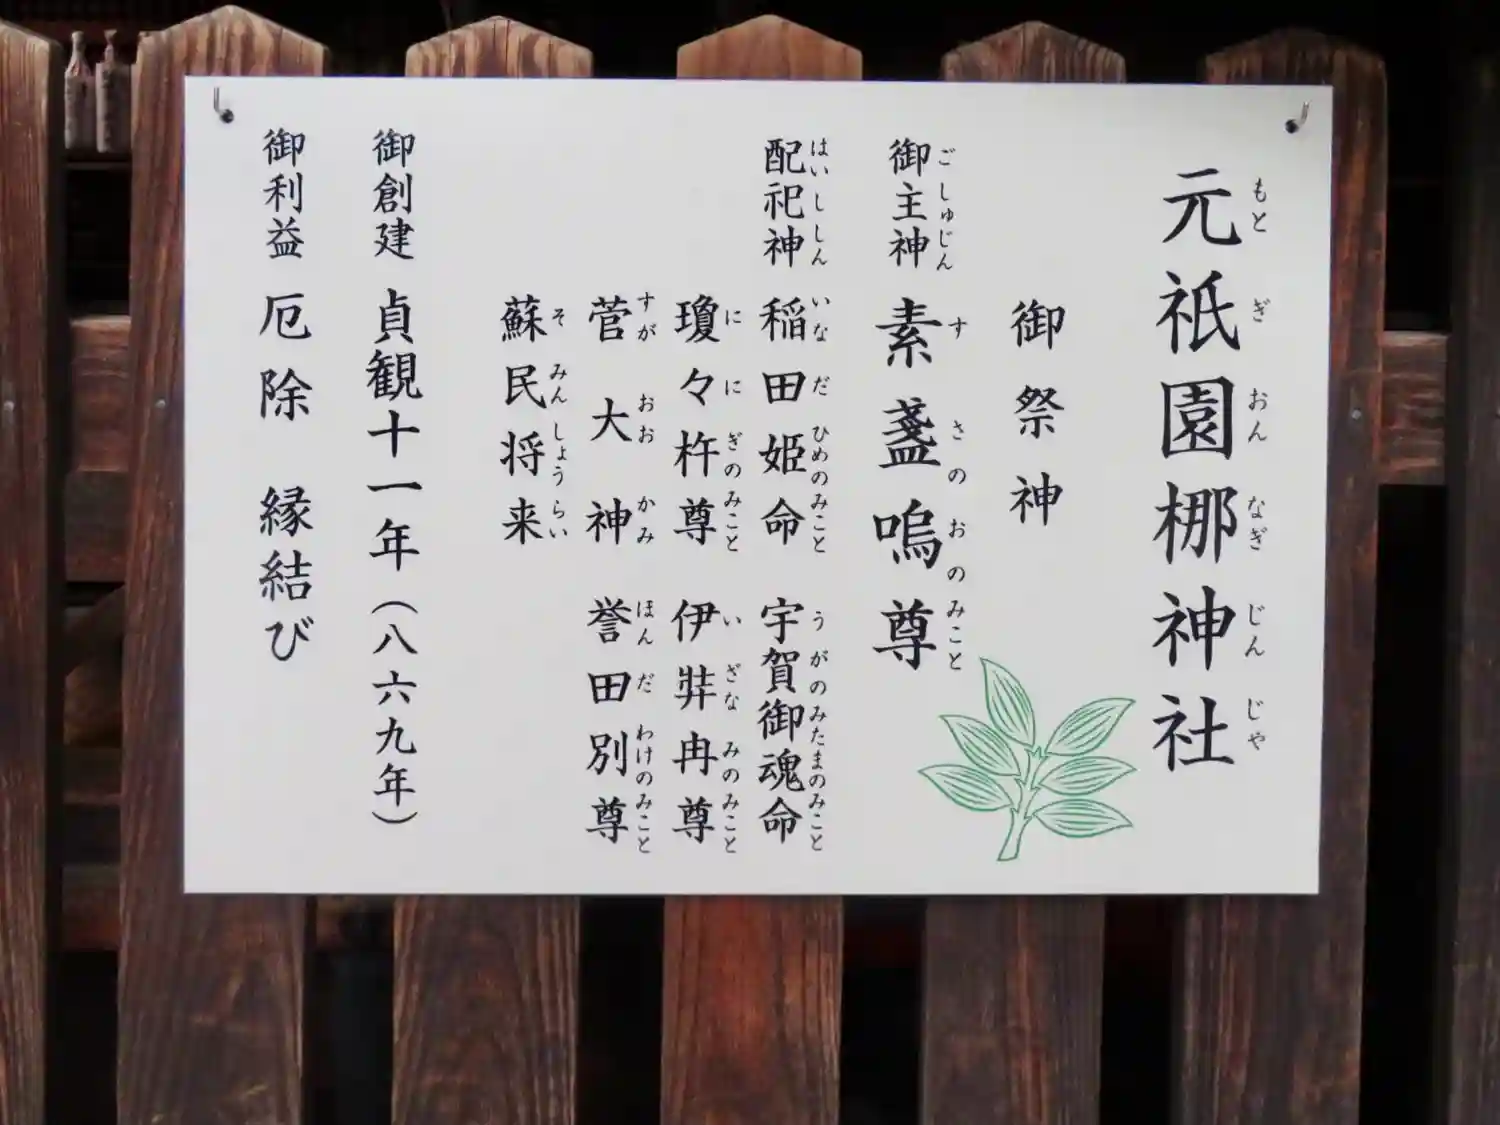 元祇園梛神社
もと ぎ おん なぎ じん じゃ
御祭神
御主神 素盞嗚尊
ごしゅじん す さの おの みこと
配祀神 稲田姫命 宇賀御魂命
はいししん いな だ ひめのみこと うがのみたまのみこと
瓊々杵尊 伊弉冉尊
に に ぎのみこと い ざな みのみこと
菅大神 誉田別尊
すが おお かみ ほん だ わけのみこと
蘇民将来
そ みん しょう らい
御創建 貞観十一年（八六九年）
御利益 厄除 縁結び